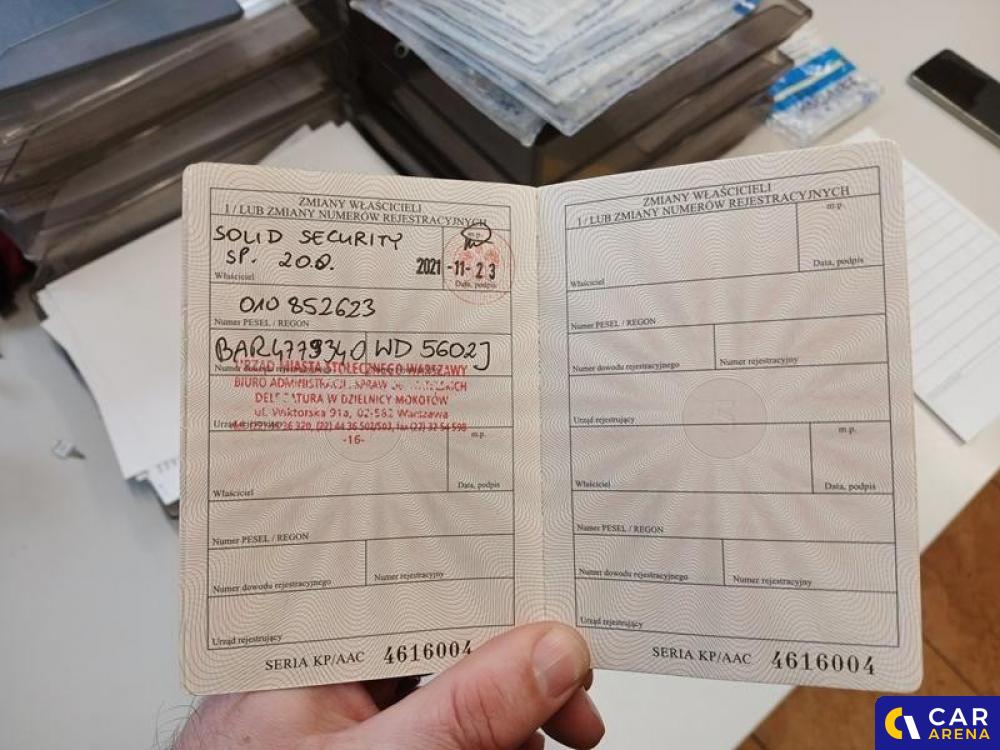 ZMIANY WŁAŚCICIELI
I / LUB ZMIANY NUMERÓW REJESTRACYJNYCH
SOLID SECURITY
SP. ZO.O.
m.p.
2021 -11- 23
Właściciel
Data, podpis
010 852623
Numer PESEL / REGON
BAR4779340 WD 5602J
URZĄD MIASTA STOŁECZNEGO WARSZAWY
BIURO ADMINISTRACJI I SPRAW OBYWATELSKICH
DELEGATURA W DZIELNICY MOKOTÓW
ul. Wiktorska 91a, 02-582 Warszawa
Urząd rejestrujący
-16-
m.p.
Właściciel
Data, podpis
Numer PESEL / REGON
Numer dowodu rejestracyjnego
Numer rejestracyjny
Urząd rejestrujący
SERIA KP/AAC 4616004
ZMIANY WŁAŚCICIELI
I / LUB ZMIANY NUMERÓW REJESTRACYJNYCH
m.p.
Właściciel
Data, podpis
Numer PESEL / REGON
Numer dowodu rejestracyjnego
Numer rejestracyjny
Urząd rejestrujący
m.p.
Właściciel
Data, podpis
Numer PESEL / REGON
Numer dowodu rejestracyjnego
Numer rejestracyjny
Urząd rejestrujący
SERIA KP/AAC 4616004
CAR
ARENA